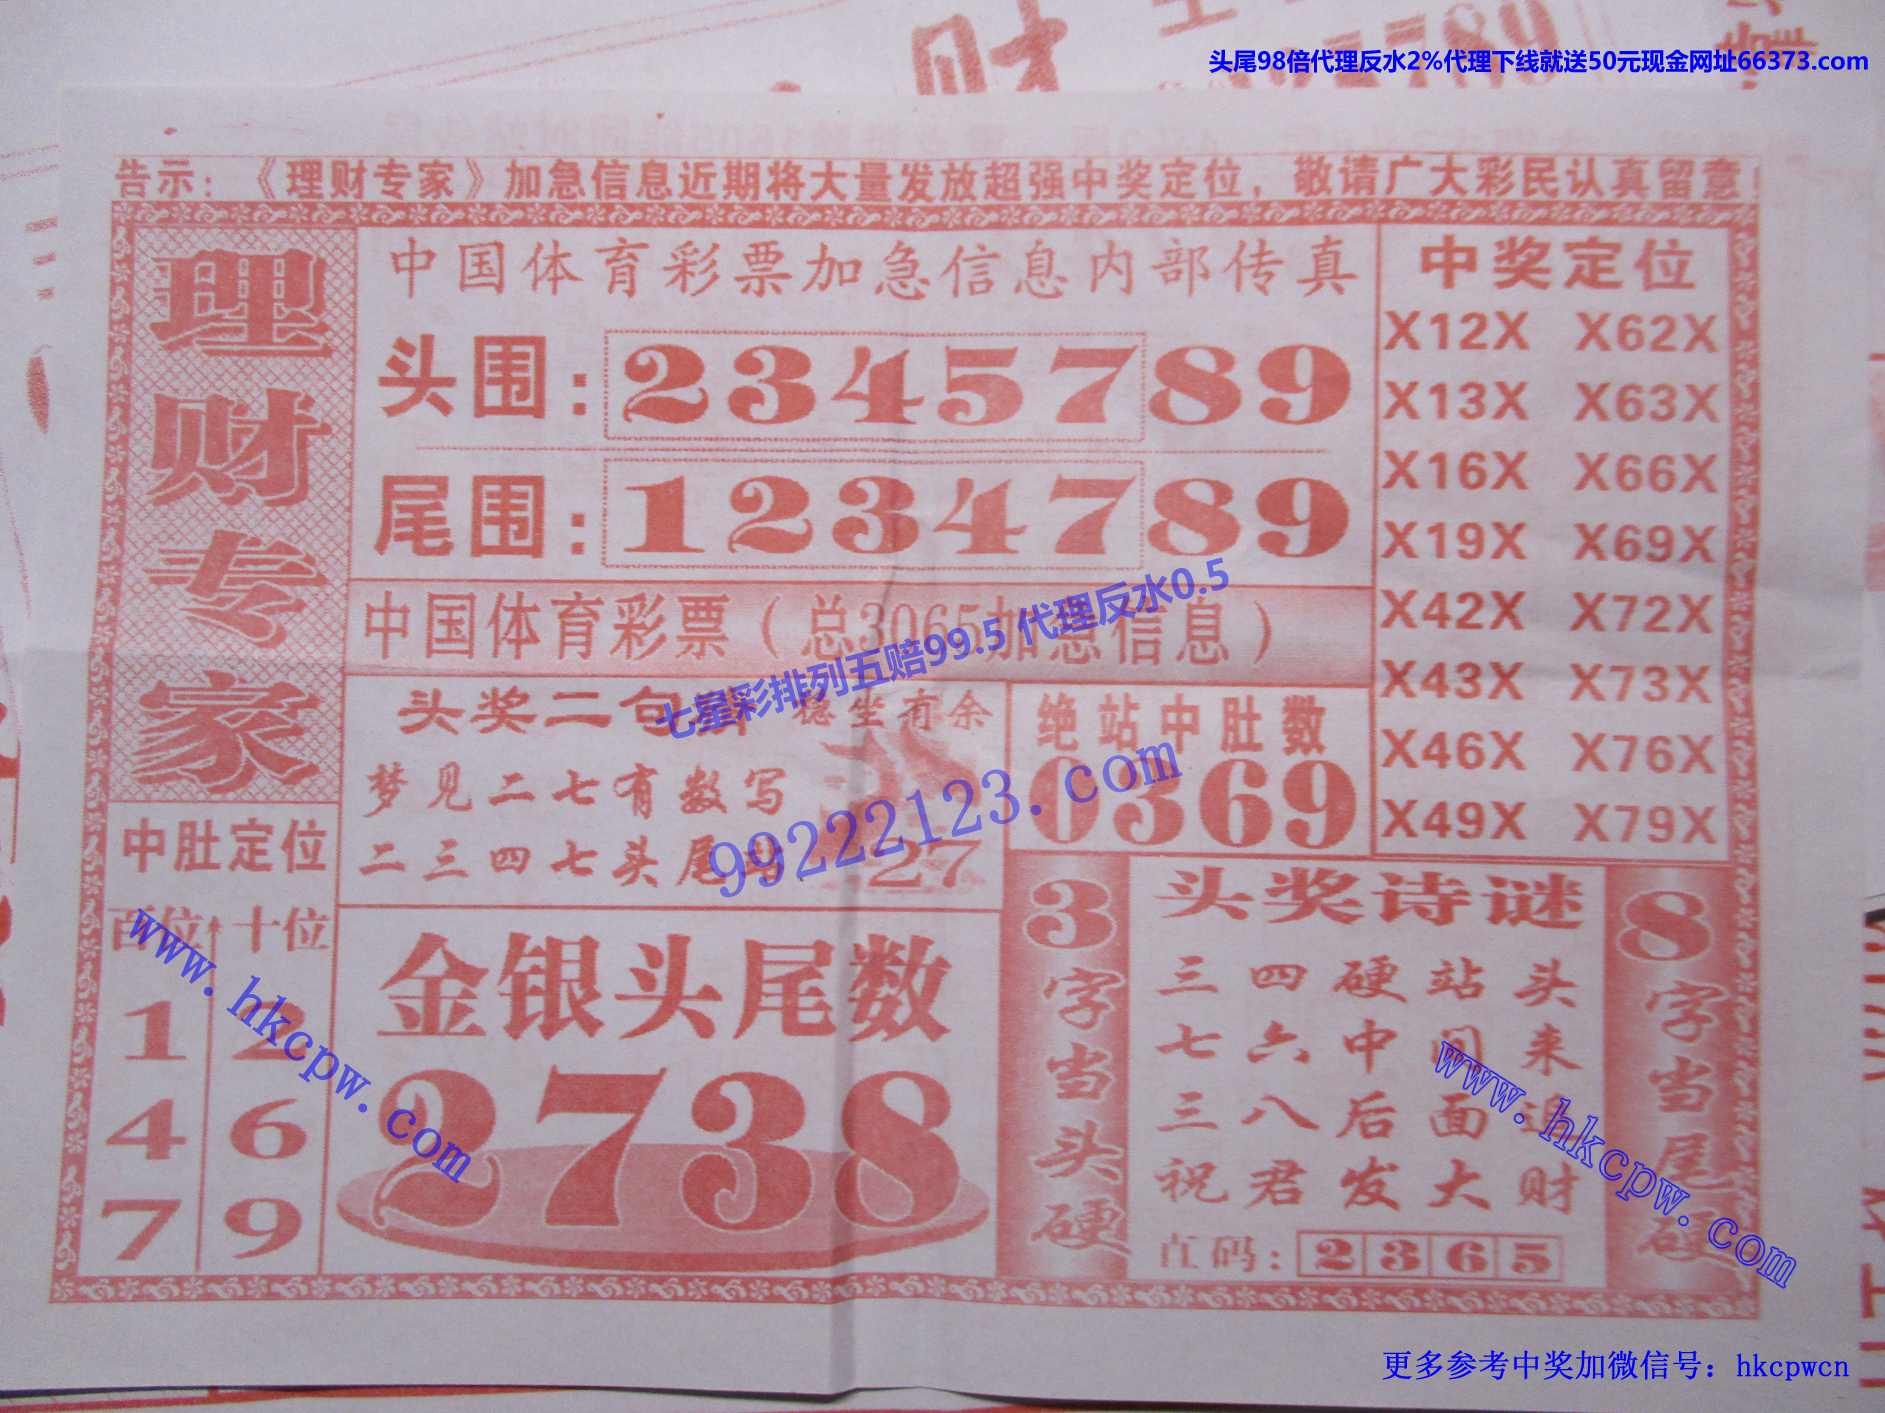 头尾98倍代理反水2%代理下线就送50元现金网址66373.com
告示：《理财专家》加急信息近期将大量发放超强中奖定位，敬请广大彩民认真留意！
理财专家
中国体育彩票加急信息内部传真
头围：2345789
尾围：1234789
中国体育彩票（总3065加急信息）
七星彩排列五赔99.5 代理反水0.5
99222123.com
中奖定位
X12X X62X
X13X X63X
X16X X66X
X19X X69X
X42X X72X
X43X X73X
X46X X76X
X49X X79X
头奖二句 稳坐有余
梦见二七有数写
二三四七头尾
27
绝站中肚数
0369
中肚定位
百位 十位
1 2
4 6
7 9
金银头尾数
2738
3字当头硬
头奖诗谜
三四硬站头
七六中间来
三八后面追
祝君发大财
直码：2365
8字当尾硬
www.hkcpw.com
www.hkcpw.com
更多参考中奖加微信号：hkcpwcn